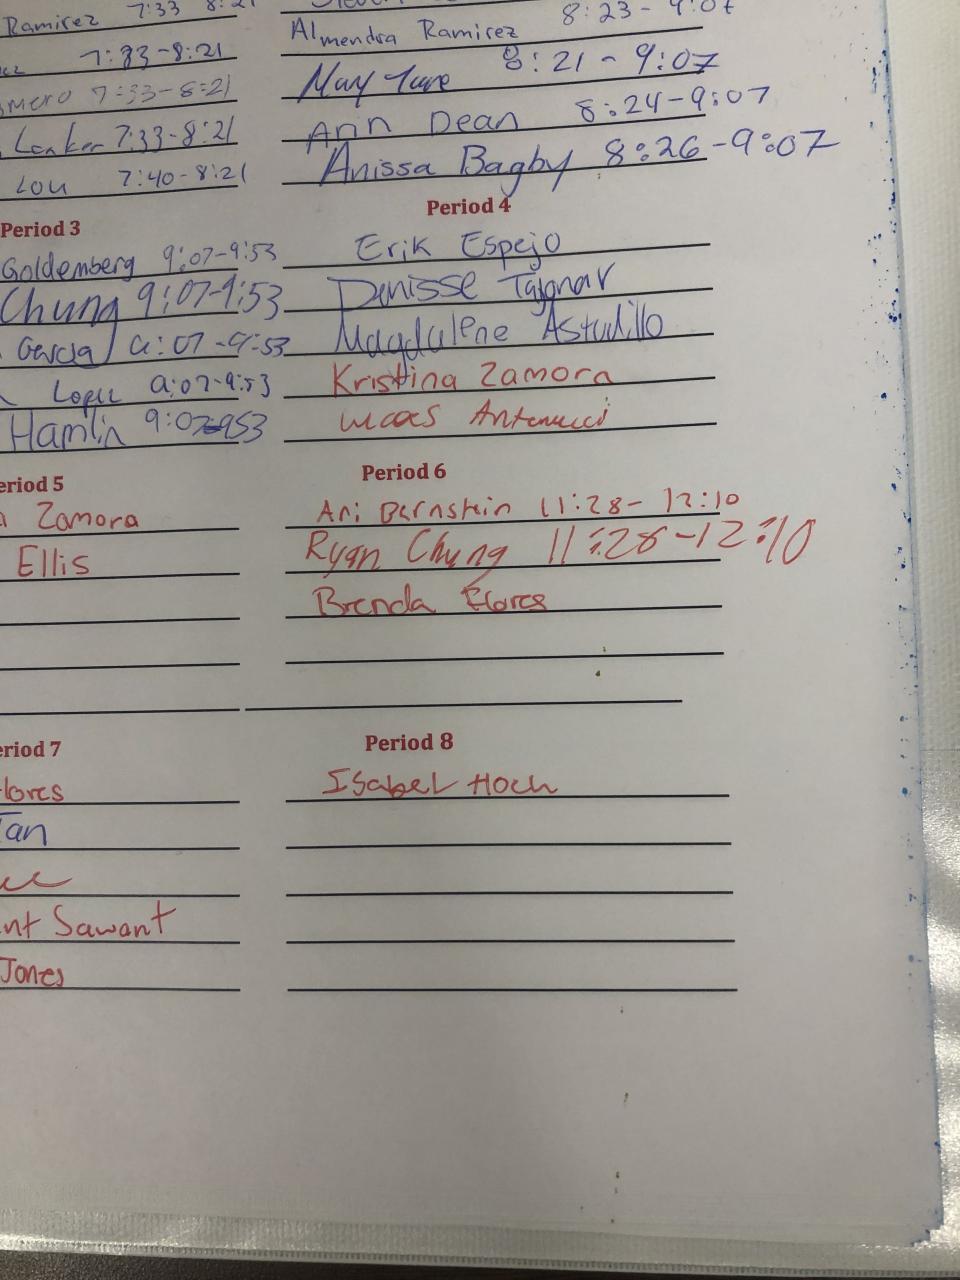 Ramirez 7:33 8:21
Almendra Ramirez 8:23-9:07
7:33-8:21
8:21-9:07
7:33-8:21
Ann Dean 8:24-9:07
7:33-8:21
Anissa Bagby 8:26-9:07
Lou 7:40-8:21
Period 3
Period 4
Goldemberg 9:07-9:53
Erik Espejo
Chung 9:07-9:53
Denisse
Garcia 9:07-9:53
Magdalene Astudillo
Lopez 9:07-9:53
Kristina Zamora
Hamlin 9:07-953
Lucas Antenucci
eriod 5
Period 6
Zamora
Ari Bernstein 11:28-12:10
Ellis
Ryan Chung 11:28-12:10
Brenda Flores
eriod 7
Period 8
lores
Isabel Hoch
Tan
nt Sawant
Jones